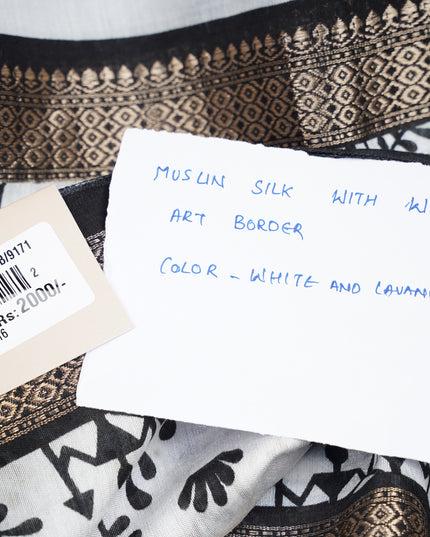 MUSLIN SILK WITH
ART BORDER
COLOR - WHITE AND
8/9171
2
Rs: 2000/-